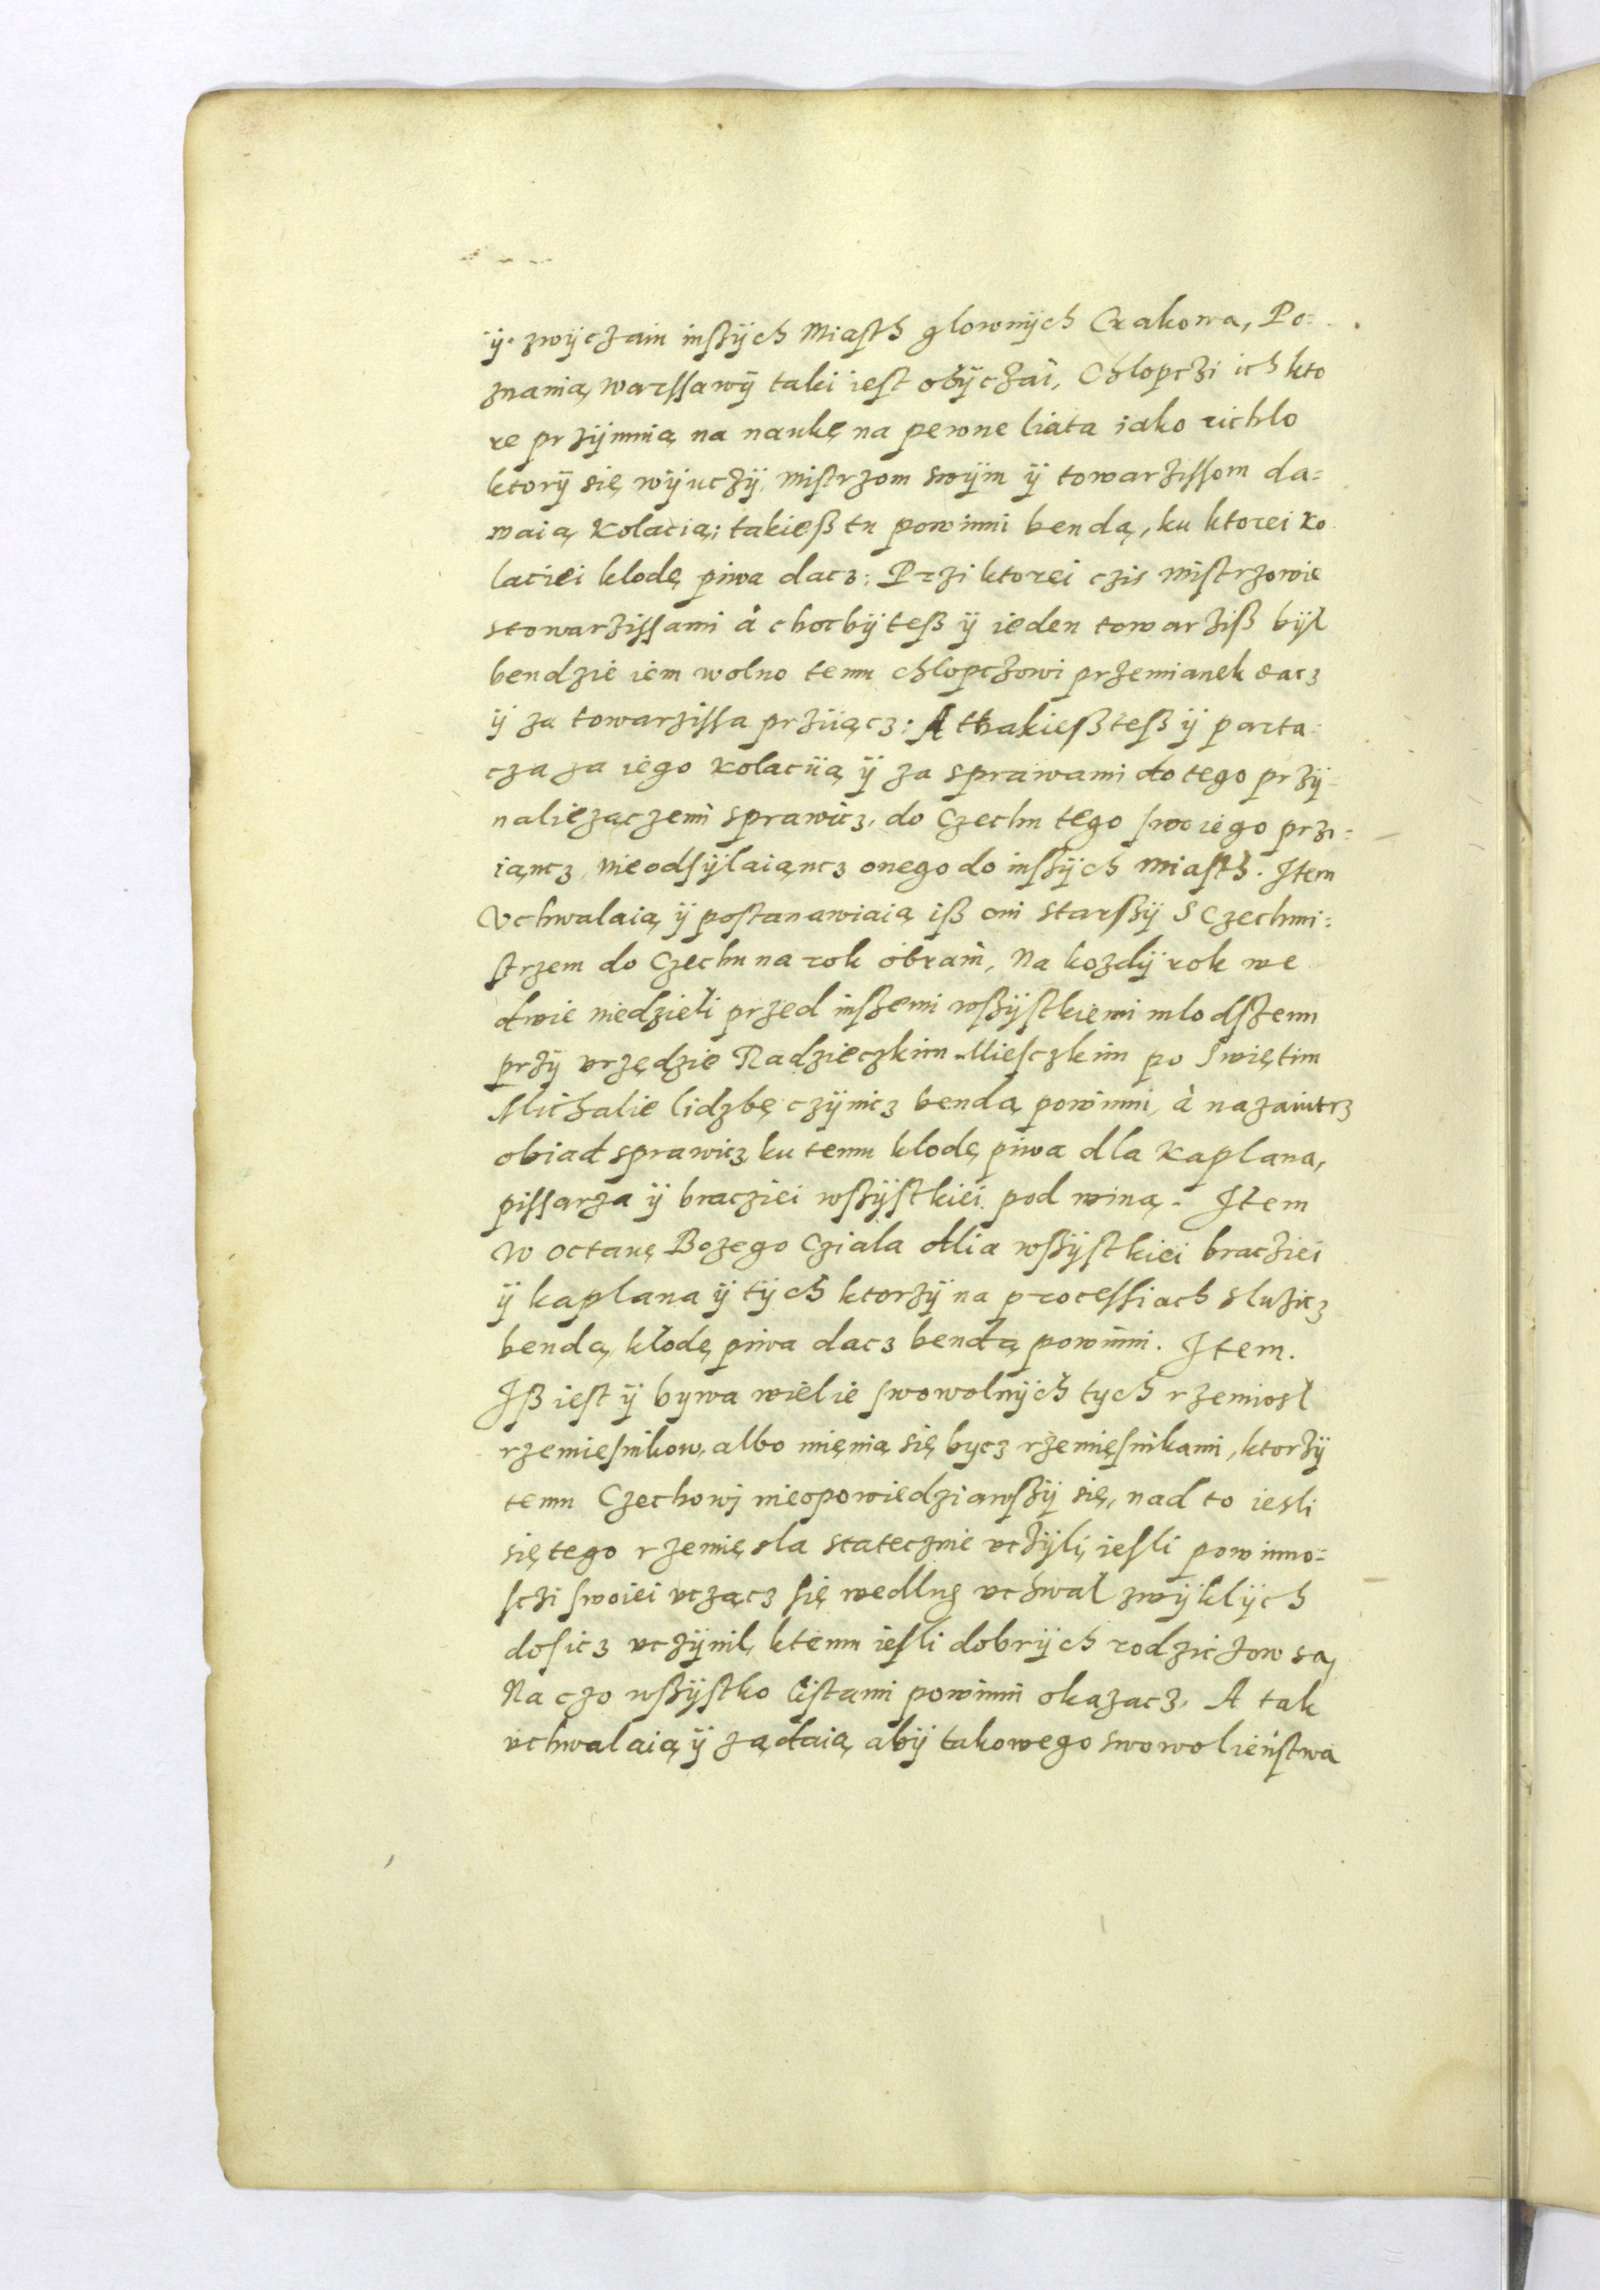 ÿ zwÿczain inßÿch Miasth glownÿch Crakowa, Po=
znania, warssawÿ taki iest obÿczai, Chlopczi ich kto
re przÿmnią na naukę na pewne liata iako richlo
ktorÿ się wÿuczÿ, mistrzom swÿm ÿ towarzissom da=
waią kolacią; takießtu powinni bendą, ku ktorei ko
laciei klodę piwa dacz: Przi ktorei czis mistrzowie
stowarzissami à chocbÿ teß ÿ ieden towarziß bÿl
bendzie iem wolno temu chlopczowi przemianek dacz
ÿ za towarzissa przÿiącz: A thakieß teß ÿ parta
cza za iego kolaciią ÿ za sprawami do tego przÿ
naliezączemi sprawicz, do Czechu tego swoiego przi=
iąncz, nieodsÿlaiąncz onego do inßÿch miasth. Item
Vchwalaią ÿ postanawiaią iß oni starßÿ S Czechmi=
strzem do Czechu na rok obrani, Na kozdÿ rok we
dwie niedzieli przed inßemi wßÿstkiemi mlodszemi
przÿ vrzędzie Radzieczkim Miesczkim po Swiętim
Michalie lidzbę czÿnicz bendą powinni, à nazaiutrz
obiad sprawicz, ku temu klodę piwa dla kaplana,
pissarza ÿ bracziei wßÿstkiei pod winą. Item
W octawę Bozego Cziala dlia wßÿstkiei bracziei
ÿ kaplana ÿ tÿch ktorzÿ na processiach sluzicz
bendą, klodę piwa dacz bendą powinni. Item.
Iß iest ÿ bywa wielie swowolnÿch tych rzemiosl
rzemiesnikow, albo mienią się bycz rzemięsnikami, ktorzÿ
temu Czechowi nieopowiedziawßÿ się, nad to iesli
się tego rzemięsla statecznie vczÿli, iesli powinno=
sczi swoiei vcząc się wedlug vchwal zwÿklÿch
dosicz vczÿnil, ktemu iesli dobrÿch rodziczow są,
Na czo wßÿstko listami powinni okazacz. A tak
vchwalaią ÿ ządaią abÿ takowego swowolieństwa